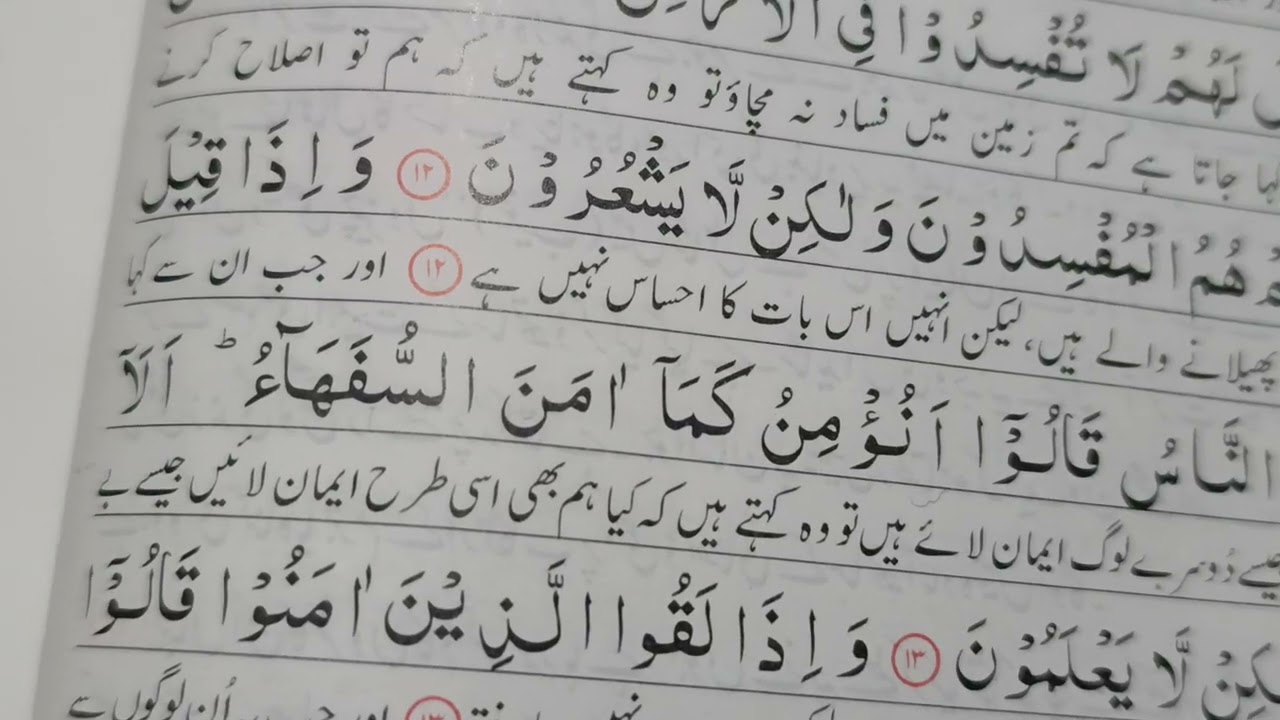 لَهُمْ لَا تُفْسِدُوْا فِي الْاَرْضِ
جاتا ہے کہ تم زمین میں فساد نہ مچاؤ تو وہ کہتے ہیں کہ ہم تو اصلاح کرنے
هُمُ الْمُفْسِدُوْنَ وَلٰكِنْ لَّا يَشْعُرُوْنَ ۱۲ وَاِذَا قِيْلَ
پھیلانے والے ہیں، لیکن انہیں اس بات کا احساس نہیں ہے ۱۲ اور جب ان سے کہا
النَّاسُ قَالُوْٓا اَنُؤْمِنُ كَمَآ اٰمَنَ السُّفَهَآءُ ؕ اَلَآ
جیسے دُوسرے لوگ ایمان لائے ہیں تو وہ کہتے ہیں کہ کیا ہم بھی اسی طرح ایمان لائیں جیسے بے
لَّا يَعْلَمُوْنَ ۱۳ وَاِذَا لَقُوا الَّذِيْنَ اٰمَنُوْا قَالُوْٓا
نہیں ۱۳ اور اُن لوگوں سے